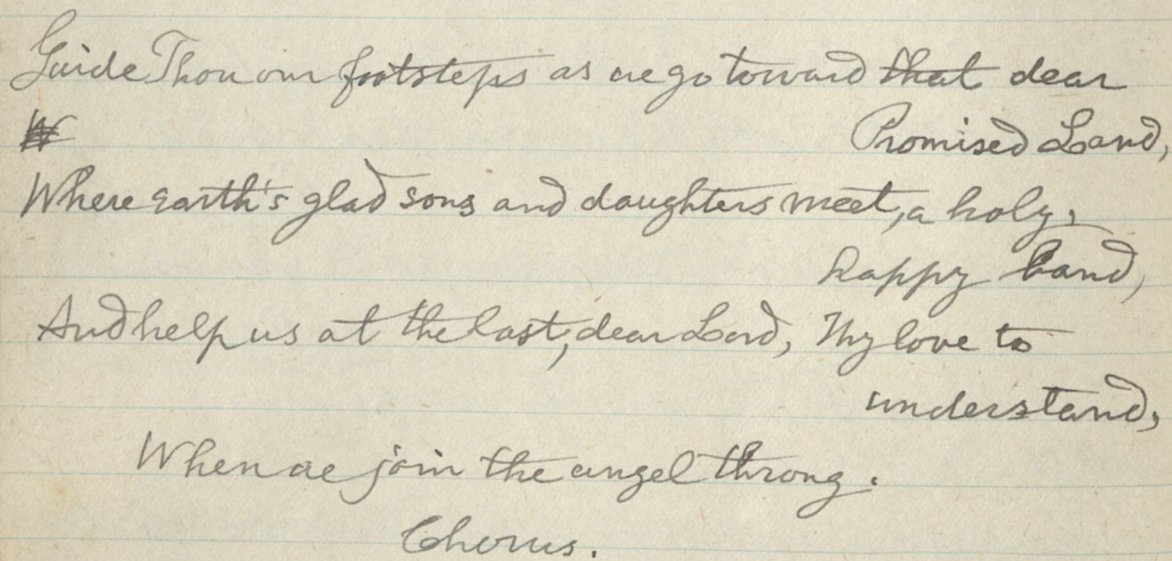 Guide Thou our footsteps as we go toward that dear
W Promised Land,
Where Earth's glad sons and daughters meet, a holy,
happy band,
And help us at the last, dear Lord, Thy love to
understand,
When we join the angel throng.
Chorus.